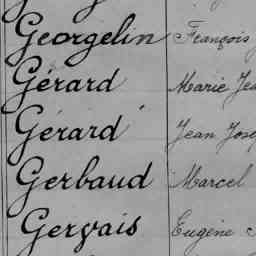 Georgelin François
Gérard Marie
Gérard Jean
Gerbaud Marcel
Gervais Eugène